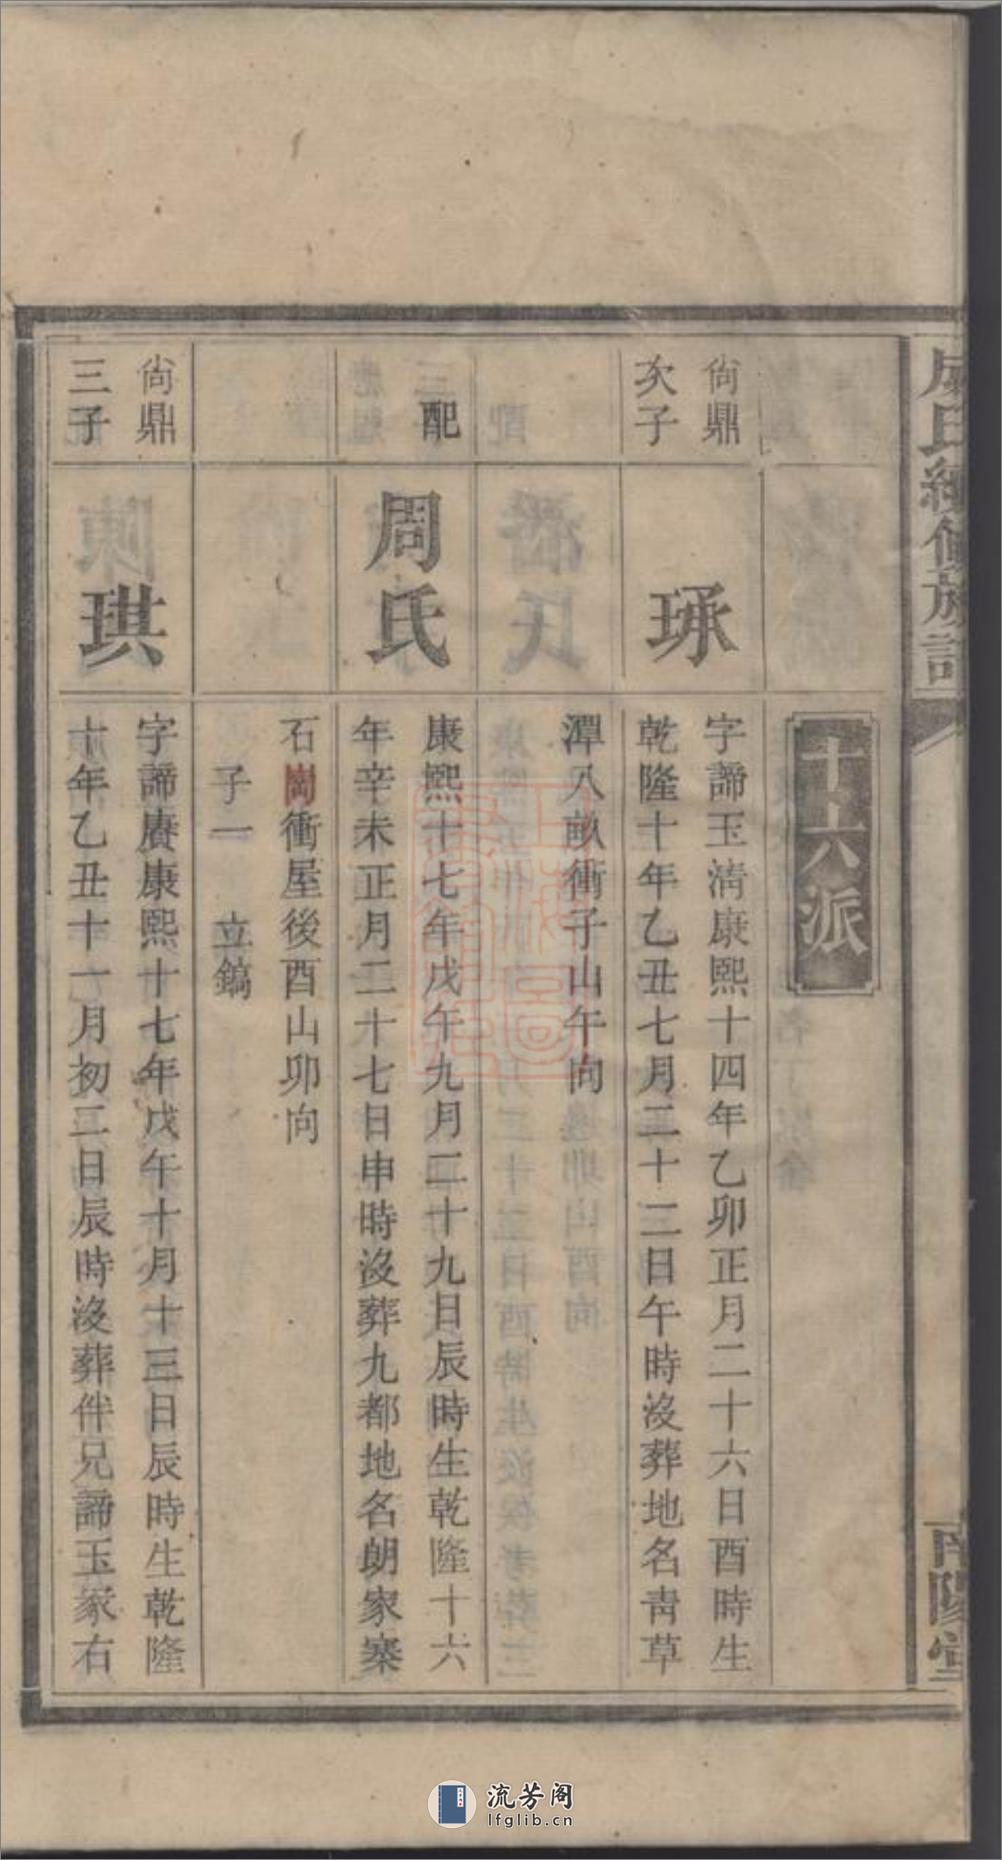 氏續修族譜
南陽堂
十六派
尚鼎
次子
琢
字諦玉清康熙十四年乙卯正月二十六日酉時生
乾隆十年乙丑七月二十二日午時沒葬地名青草
潭八畝衝子山午向
配
周氏
康熙十七年戊午九月二十九日辰時生乾隆十六
年辛未正月二十七日申時沒葬九都地名朗家寨
石崗衝屋後酉山卯向
子一 立鎬
尚鼎
三子
琪
字諦賡康熙十七年戊午十月十三日辰時生乾隆
十年乙丑十一月初二日辰時沒葬伴兄諦玉冢右
流芳阁
lfglib.cn